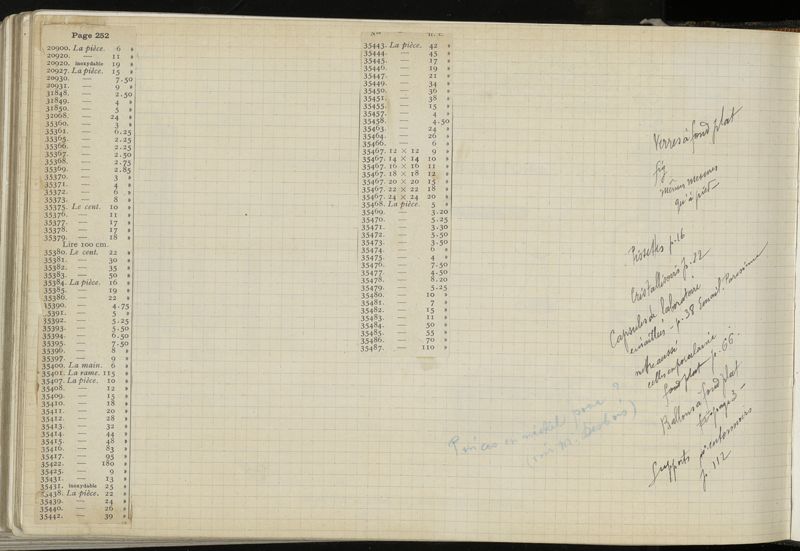 Page 252
20900. La pièce. 6 »
20920. — 11 »
20920. inoxydable 19 »
20927. La pièce. 15 »
20930. — 7.50
20931. — 9 »
31848. — 2.50
31849. — 4 »
31850. — 5 »
32068. — 24 »
35360. — 3 »
35361. — 6.25
35365. — 2.25
35366. — 2.25
35367. — 2.50
35368. — 2.75
35369. — 2.85
35370. — 3 »
35371. — 4 »
35372. — 6 »
35373. — 8 »
35375. Le cent. 10 »
35376. — 11 »
35377. — 17 »
35378. — 17 »
35379. — 18 »
Lire 100 cm.
35380. Le cent. 22 »
35381. — 30 »
35382. — 35 »
35383. — 50 »
35384. La pièce. 16 »
35385. — 19 »
35386. — 22 »
35390. — 4.75
35391. — 5 »
35392. — 5.25
35393. — 5.50
35394. — 6.50
35395. — 7.50
35396. — 8 »
35397. — 9 »
35400. La main. 6 »
35401. La rame. 115 »
35407. La pièce. 10 »
35408. — 12 »
35409. — 15 »
35410. — 18 »
35411. — 20 »
35412. — 28 »
35413. — 32 »
35414. — 44 »
35415. — 48 »
35416. — 83 »
35417. — 95 »
35422. — 180 »
35425. — 9 »
35431. — 13 »
35431. inoxydable 25 »
35438. La pièce. 22 »
35439. — 24 »
35440. — 26 »
35442. — 39 »
35443. La pièce. 42 »
35444. — 45 »
35445. — 17 »
35446. — 19 »
35447. — 21 »
35449. — 34 »
35450. — 36 »
35451. — 38 »
35455. — 15 »
35457. — 4 »
35458. — 4.50
35463. — 24 »
35464. — 26 »
35466. — 6 »
35467. 12 × 12 9 »
35467. 14 × 14 10 »
35467. 16 × 16 11 »
35467. 18 × 18 12 »
35467. 20 × 20 15 »
35467. 22 × 22 18 »
35467. 24 × 24 20 »
35468. La pièce. 5 »
35469. — 3.20
35470. — 5.25
35471. — 3.30
35472. — 5.50
35473. — 3.50
35474. — 6 »
35475. — 4 »
35476. — 7.50
35477. — 4.50
35478. — 8.20
35479. — 5.25
35480. — 10 »
35481. — 7 »
35482. — 15 »
35483. — 11 »
35484. — 50 »
35485. — 55 »
35486. — 70 »
35487. — 110 »
Verres à fond plat
fig
mêmes mesures
qu'à pied
Pissettes p. 16
Cristallisoirs p. 22
Capsules de laboratoire
émaillées - p. 38 Email. Parisienne
noter aussi
celles en porcelaine
fond plat p. 66
Ballons à fond plat
page 3 -
Supports p. entonnoirs
p. 112
Pinces en nickel pour ?
(voir M. Desbois)